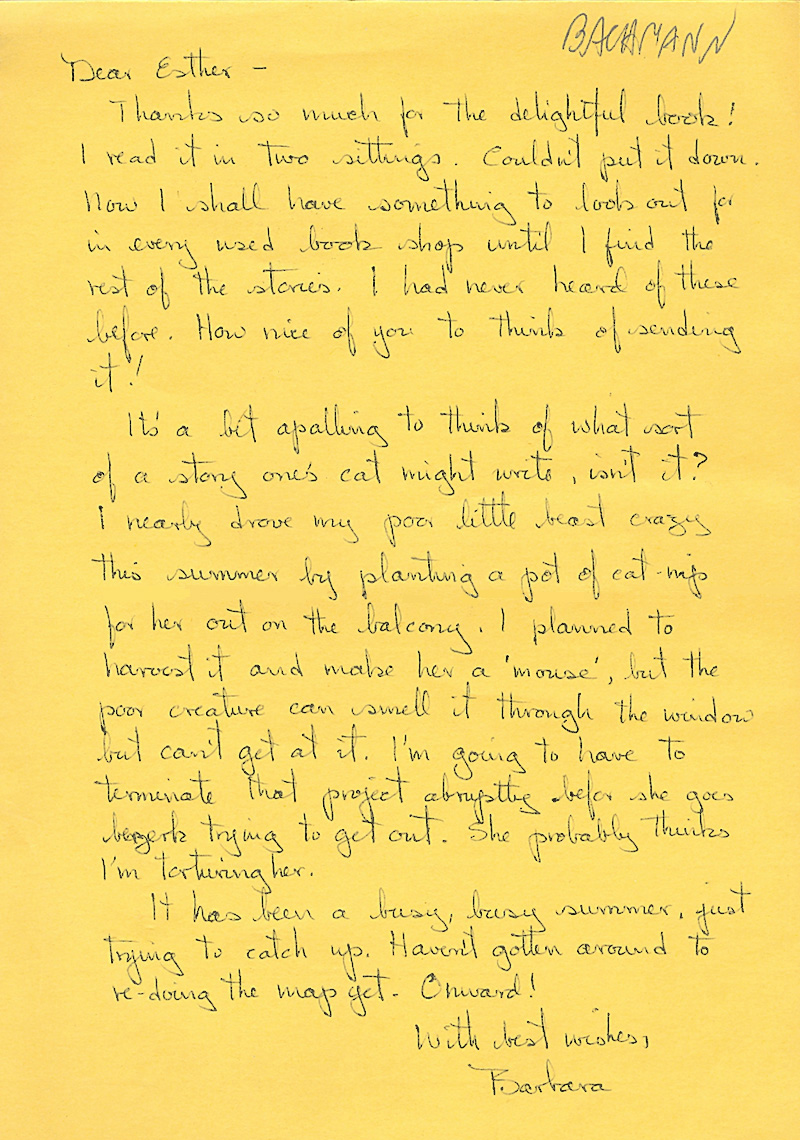 BACHMANN
Dear Esther –
Thanks so much for the delightful book!
I read it in two sittings. Couldn't put it down.
Now I shall have something to look out for
in every used book shop until I find the
rest of the stories. I had never heard of these
before. How nice of you to think of sending
it!
It's a bit apalling to think of what sort
of a story one's cat might write, isn't it?
I nearly drove my poor little beast crazy
this summer by planting a pot of cat-nip
for her out on the balcony. I planned to
harvest it and make her a 'mouse', but the
poor creature can smell it through the window
but can't get at it. I'm going to have to
terminate that project abruptly befor she goes
berzerk trying to get out. She probably thinks
I'm torturing her.
It has been a busy, busy summer, just
trying to catch up. Haven't gotten around to
re-doing the map yet. Onward!
With best wishes,
Barbara